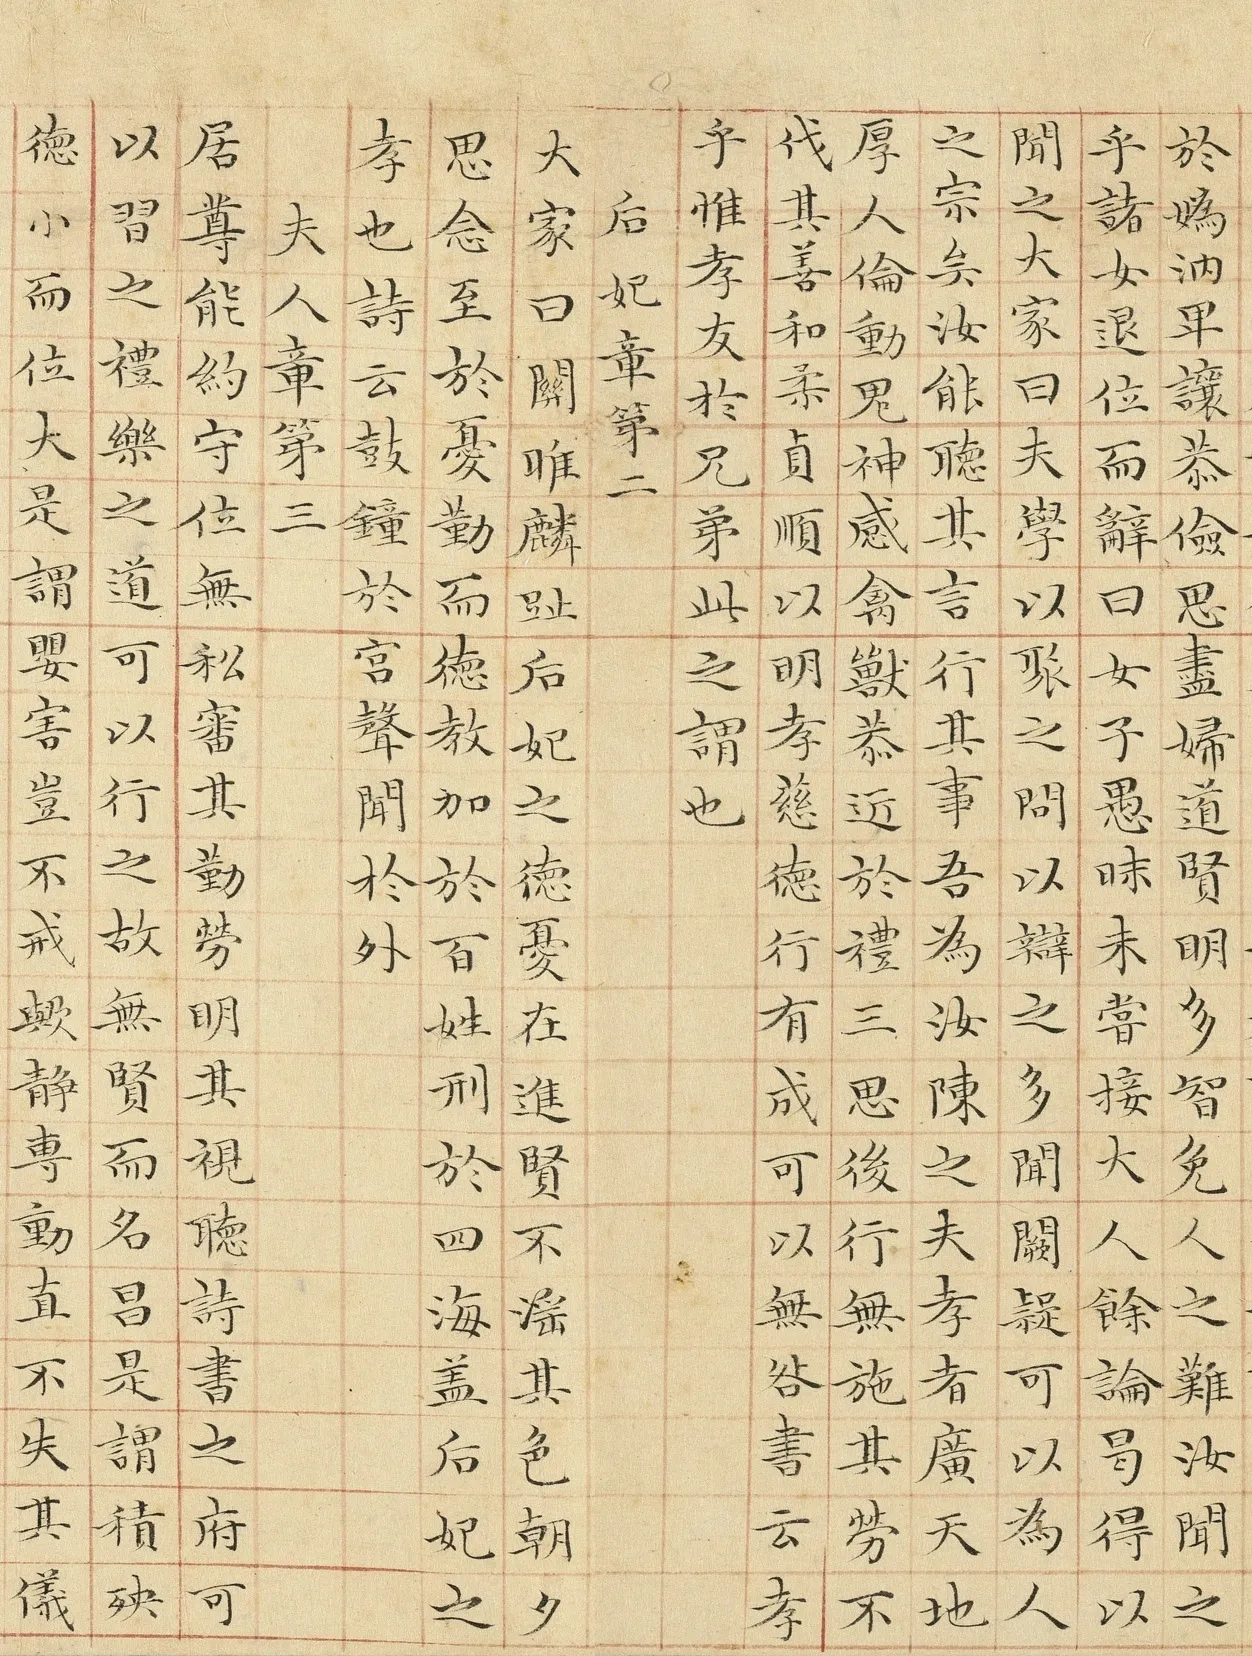 於嬀汭卑讓恭儉思盡婦道賢明多智免人之難汝聞之
乎諸女退位而辭曰女子愚昧未嘗接大人餘論曷得以
聞之大家曰夫學以聚之問以辯之多聞闕疑可以為人
之宗矣汝能聽其言行其事吾為汝陳之夫孝者廣天地
厚人倫動鬼神感禽獸恭近於禮三思後行無施其勞不
伐其善和柔貞順以明孝慈德行有成可以無咎書云孝
乎惟孝友於兄弟此之謂也
后妃章第二
大家曰關雎麟趾后妃之德憂在進賢不滛其色朝夕
思念至於憂勤而德教加於百姓刑於四海盖后妃之
孝也詩云鼓鐘於宮聲聞於外
夫人章第三
居尊能約守位無私審其勤勞明其視聽詩書之府可
以習之禮樂之道可以行之故無賢而名昌是謂積殃
德小而位大是謂嬰害豈不戒歟静專動直不失其儀